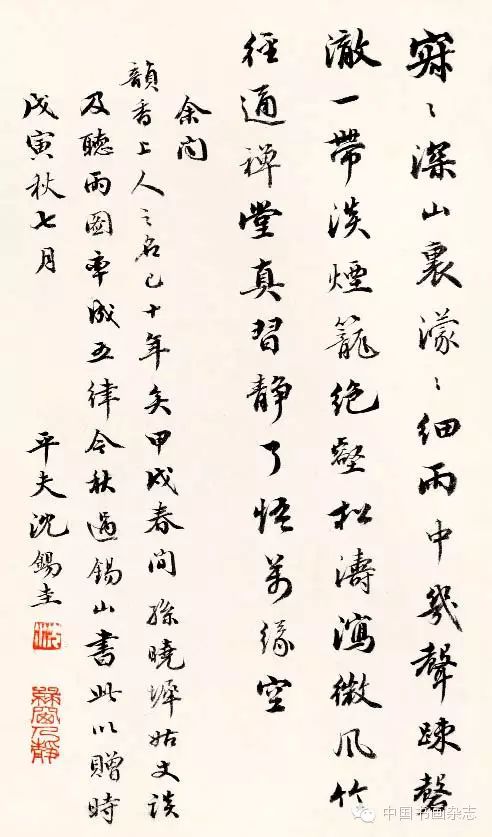 寂〻深山裏濛〻細雨中幾聲踈磬
澈一帶淡煙籠絶壑松濤瀉微風竹
徑通禅堂真習静了悟萬緣空
余聞
韻香上人之名已十年矣甲戌春間孫曉墀姑丈談
及聽雨圖率成五律今秋過錫山書此以贈時
戊寅秋七月 平夫沈錫圭
中国书画杂志